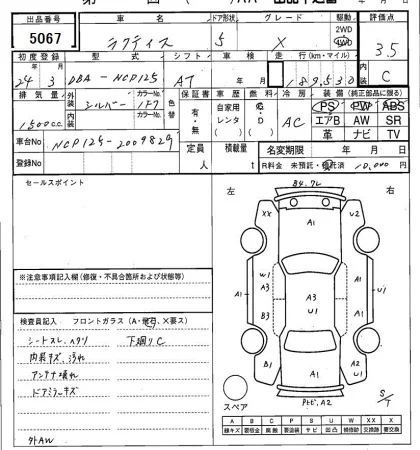 出品番号 車名 ドア形状 グレード 駆動 評価点
5067 ラクティス 5 X 2WD 4WD 3.5
初度登録 型式 シフト 車検 走行(km・マイル) 内装
24年 3月 DBA-NCP125 AT 年 月 189,530 C
排気量 外装 カラーNo. 色替 保証書 車歴 燃料 冷房 装備(純正部品に限る)
1500cc シルバー 1F7 有・無 自家用 レンタ G・D AC PS PW ABS
内装 カラーNo. エアB AW SR
革 ナビ TV
車台No NCP125-2009829 定員 人 積載量 t 名変期限 年 月 日
登録No R料金 未預託・預託済 10,000円
セールスポイント
左 右
※注意事項記入欄(修復・不具合箇所および状態等)
検査員記入 フロントガラス(A・飛石、×要ス)
シートスレ、ヘタリ 下廻りC
内装キズ、汚れ
アンテナ壊れ
ドアミラーキズ
外AW
XX A1 U2
W1
A3 A3
A1 U1 A1 U1
B3
B1 A1 A2 U1
A2
スペア
S/T
A B C P S U W X XX
線キズ 要板金 腐蝕 要塗装 サビ 凹凸 補修跡 要交換 交換済